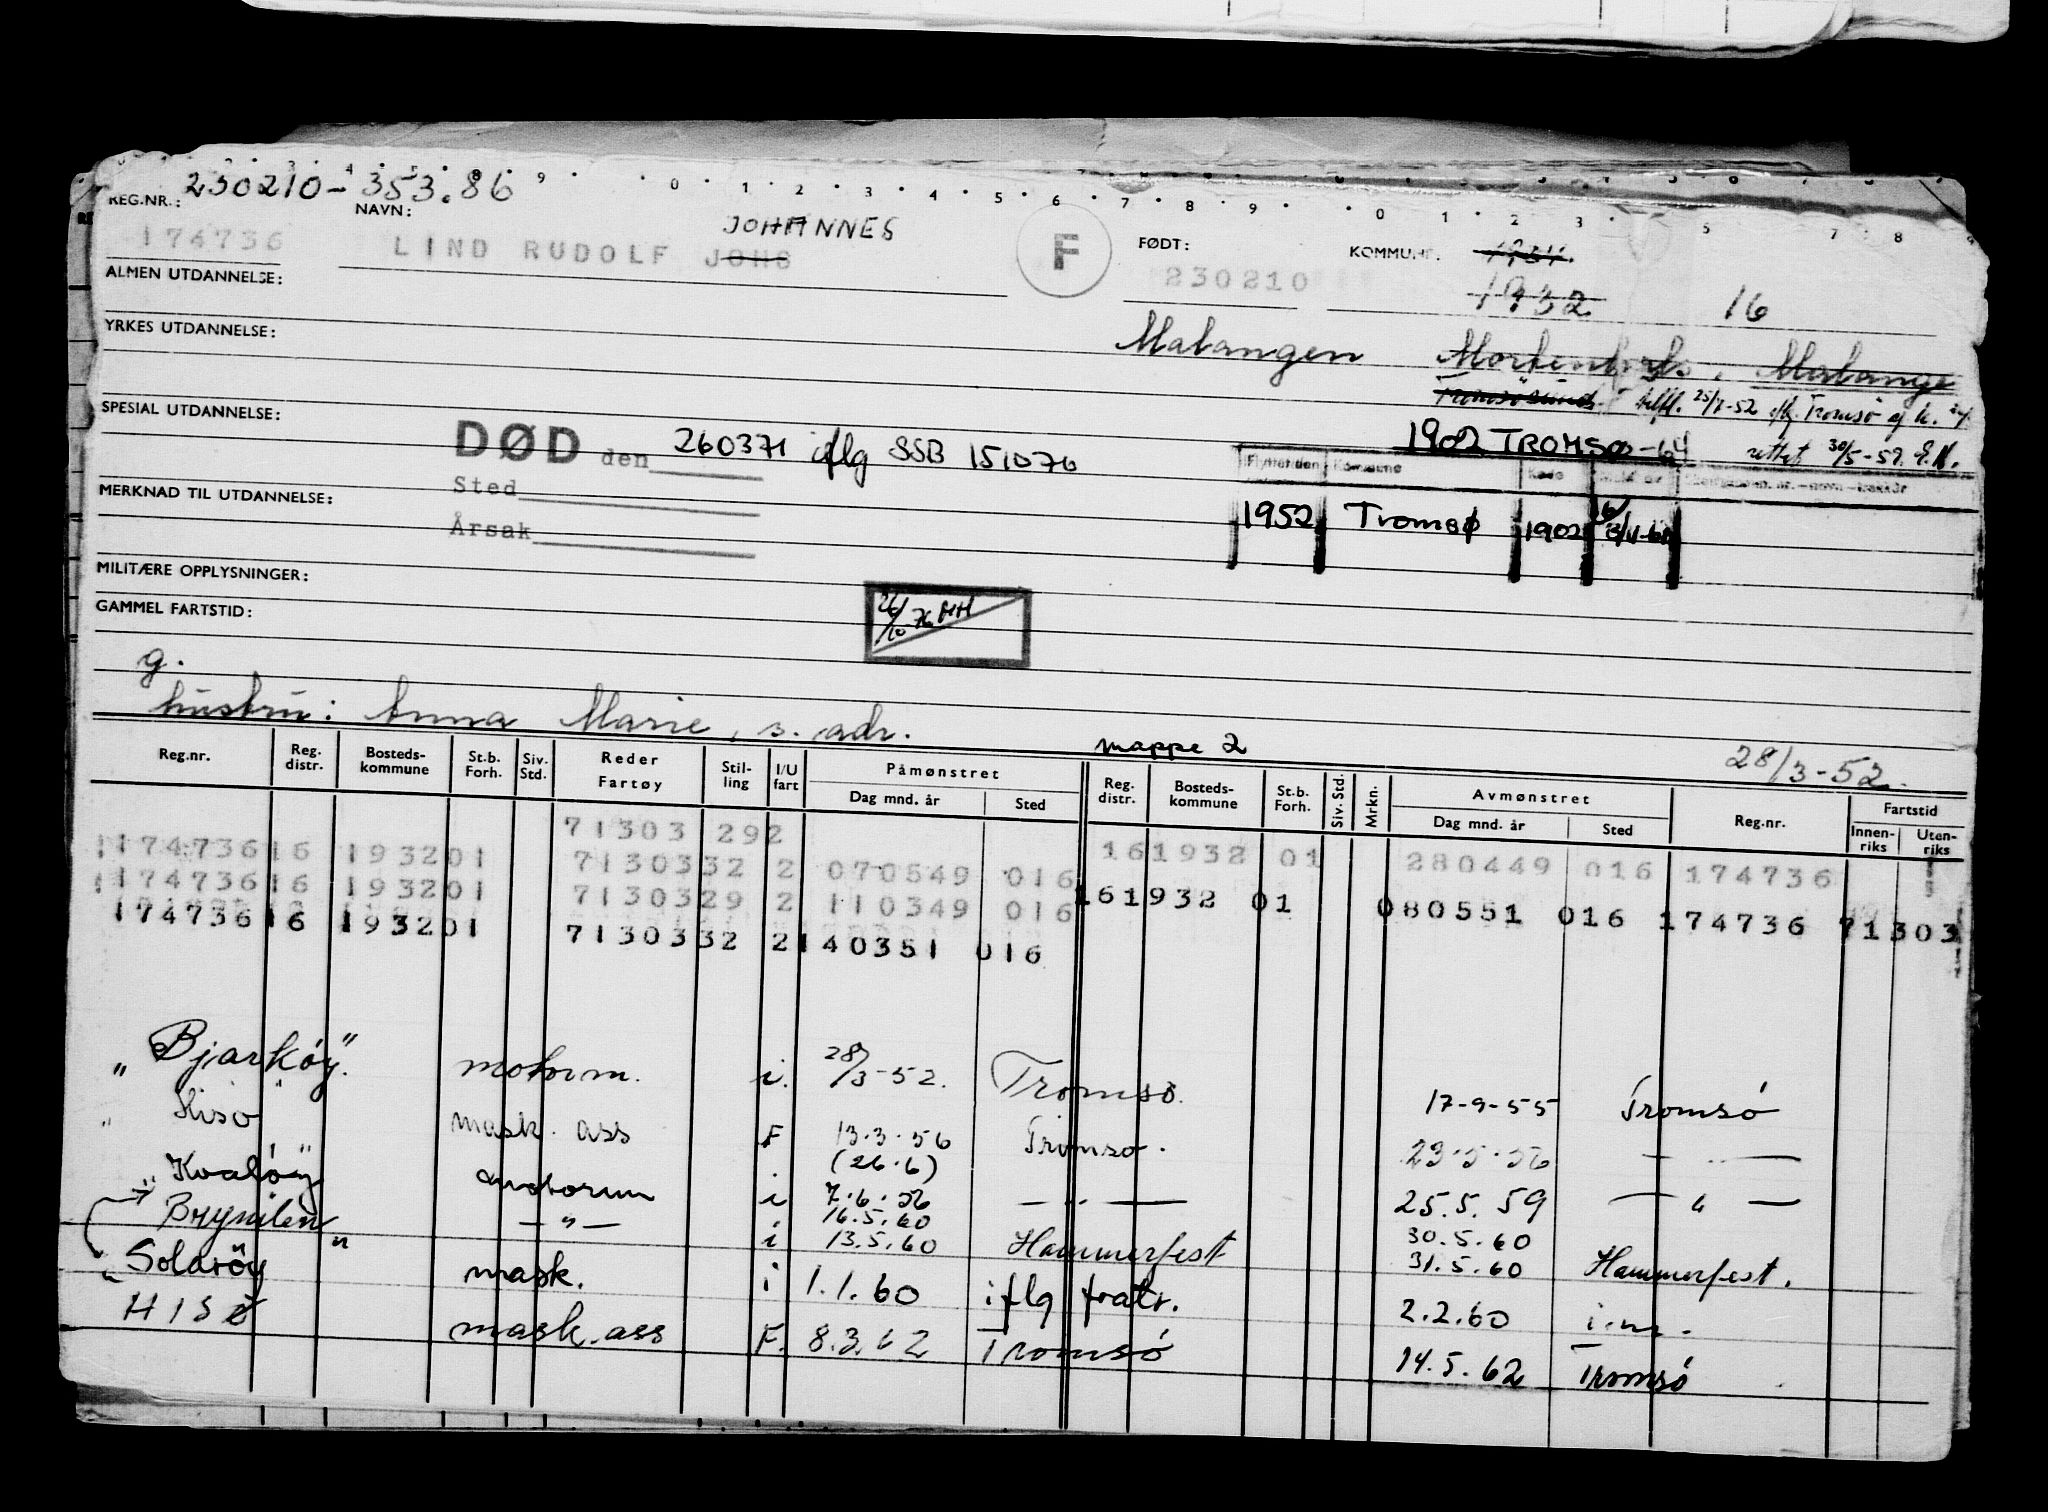 REG.NR.: 230210-353.86
NAVN: JOHANNES
174736 LIND RUDOLF JOHS F FØDT: 230210 KOMMUNE: 1931
1932 16
ALMEN UTDANNELSE:
YRKES UTDANNELSE:
Malangen Malange
Tromsøsund
SPESIAL UTDANNELSE:
DØD den 260371 iflg SSB 151076
1902 TROMSØ -64 rettet 30/5-52. E.H.
Sted
Flyttet den Kommune Kode
MERKNAD TIL UTDANNELSE:
Årsak
1952 Tromsø 1902
MILITÆRE OPPLYSNINGER:
GAMMEL FARTSTID:
26/10-76 HH
g.
hustru: Anna Marie, s. adr.
mappe 2 28/3-52.
Reg.nr. Reg. distr. Bosteds-kommune St.b. Forh. Siv. Std. Reder Fartøy Stil-ling I/U fart Påmønstret Dag mnd. år Sted Reg. distr. Bosteds-kommune St.b. Forh. Siv. Std. Mrkn. Avmønstret Dag mnd. år Sted Reg.nr. Fartstid Innen-riks Uten-riks
71303 292
174736 16 1932 01 71303 32 2 070549 016 16 1932 01 280449 016 174736
174736 16 1932 01 71303 29 2 110349 016 16 1932 01 080551 016 174736 71303
174736 16 1932 01 71303 32 2 140351 016
"Bjarköy". motorm. i. 28/3-52. Tromsö. 17-9-55 Tromsö
"Hisö" mask. ass F 13.3.56 Tromsö. 23.5.56 — " —
(26.6)
"Kvalöy" motorm i 7.6.56 — " — 25.5.59 — " —
16.5.60 30.5.60
"Brynilen" — " — i 13.5.60 Hammerfest 31.5.60 Hammerfest.
"Solaröy" mask. i 1.1.60 iflg fratr. 2.2.60 i.m.
HISÖ mask.ass F. 8.3.62 Tromsö 14.5.62 Tromsö